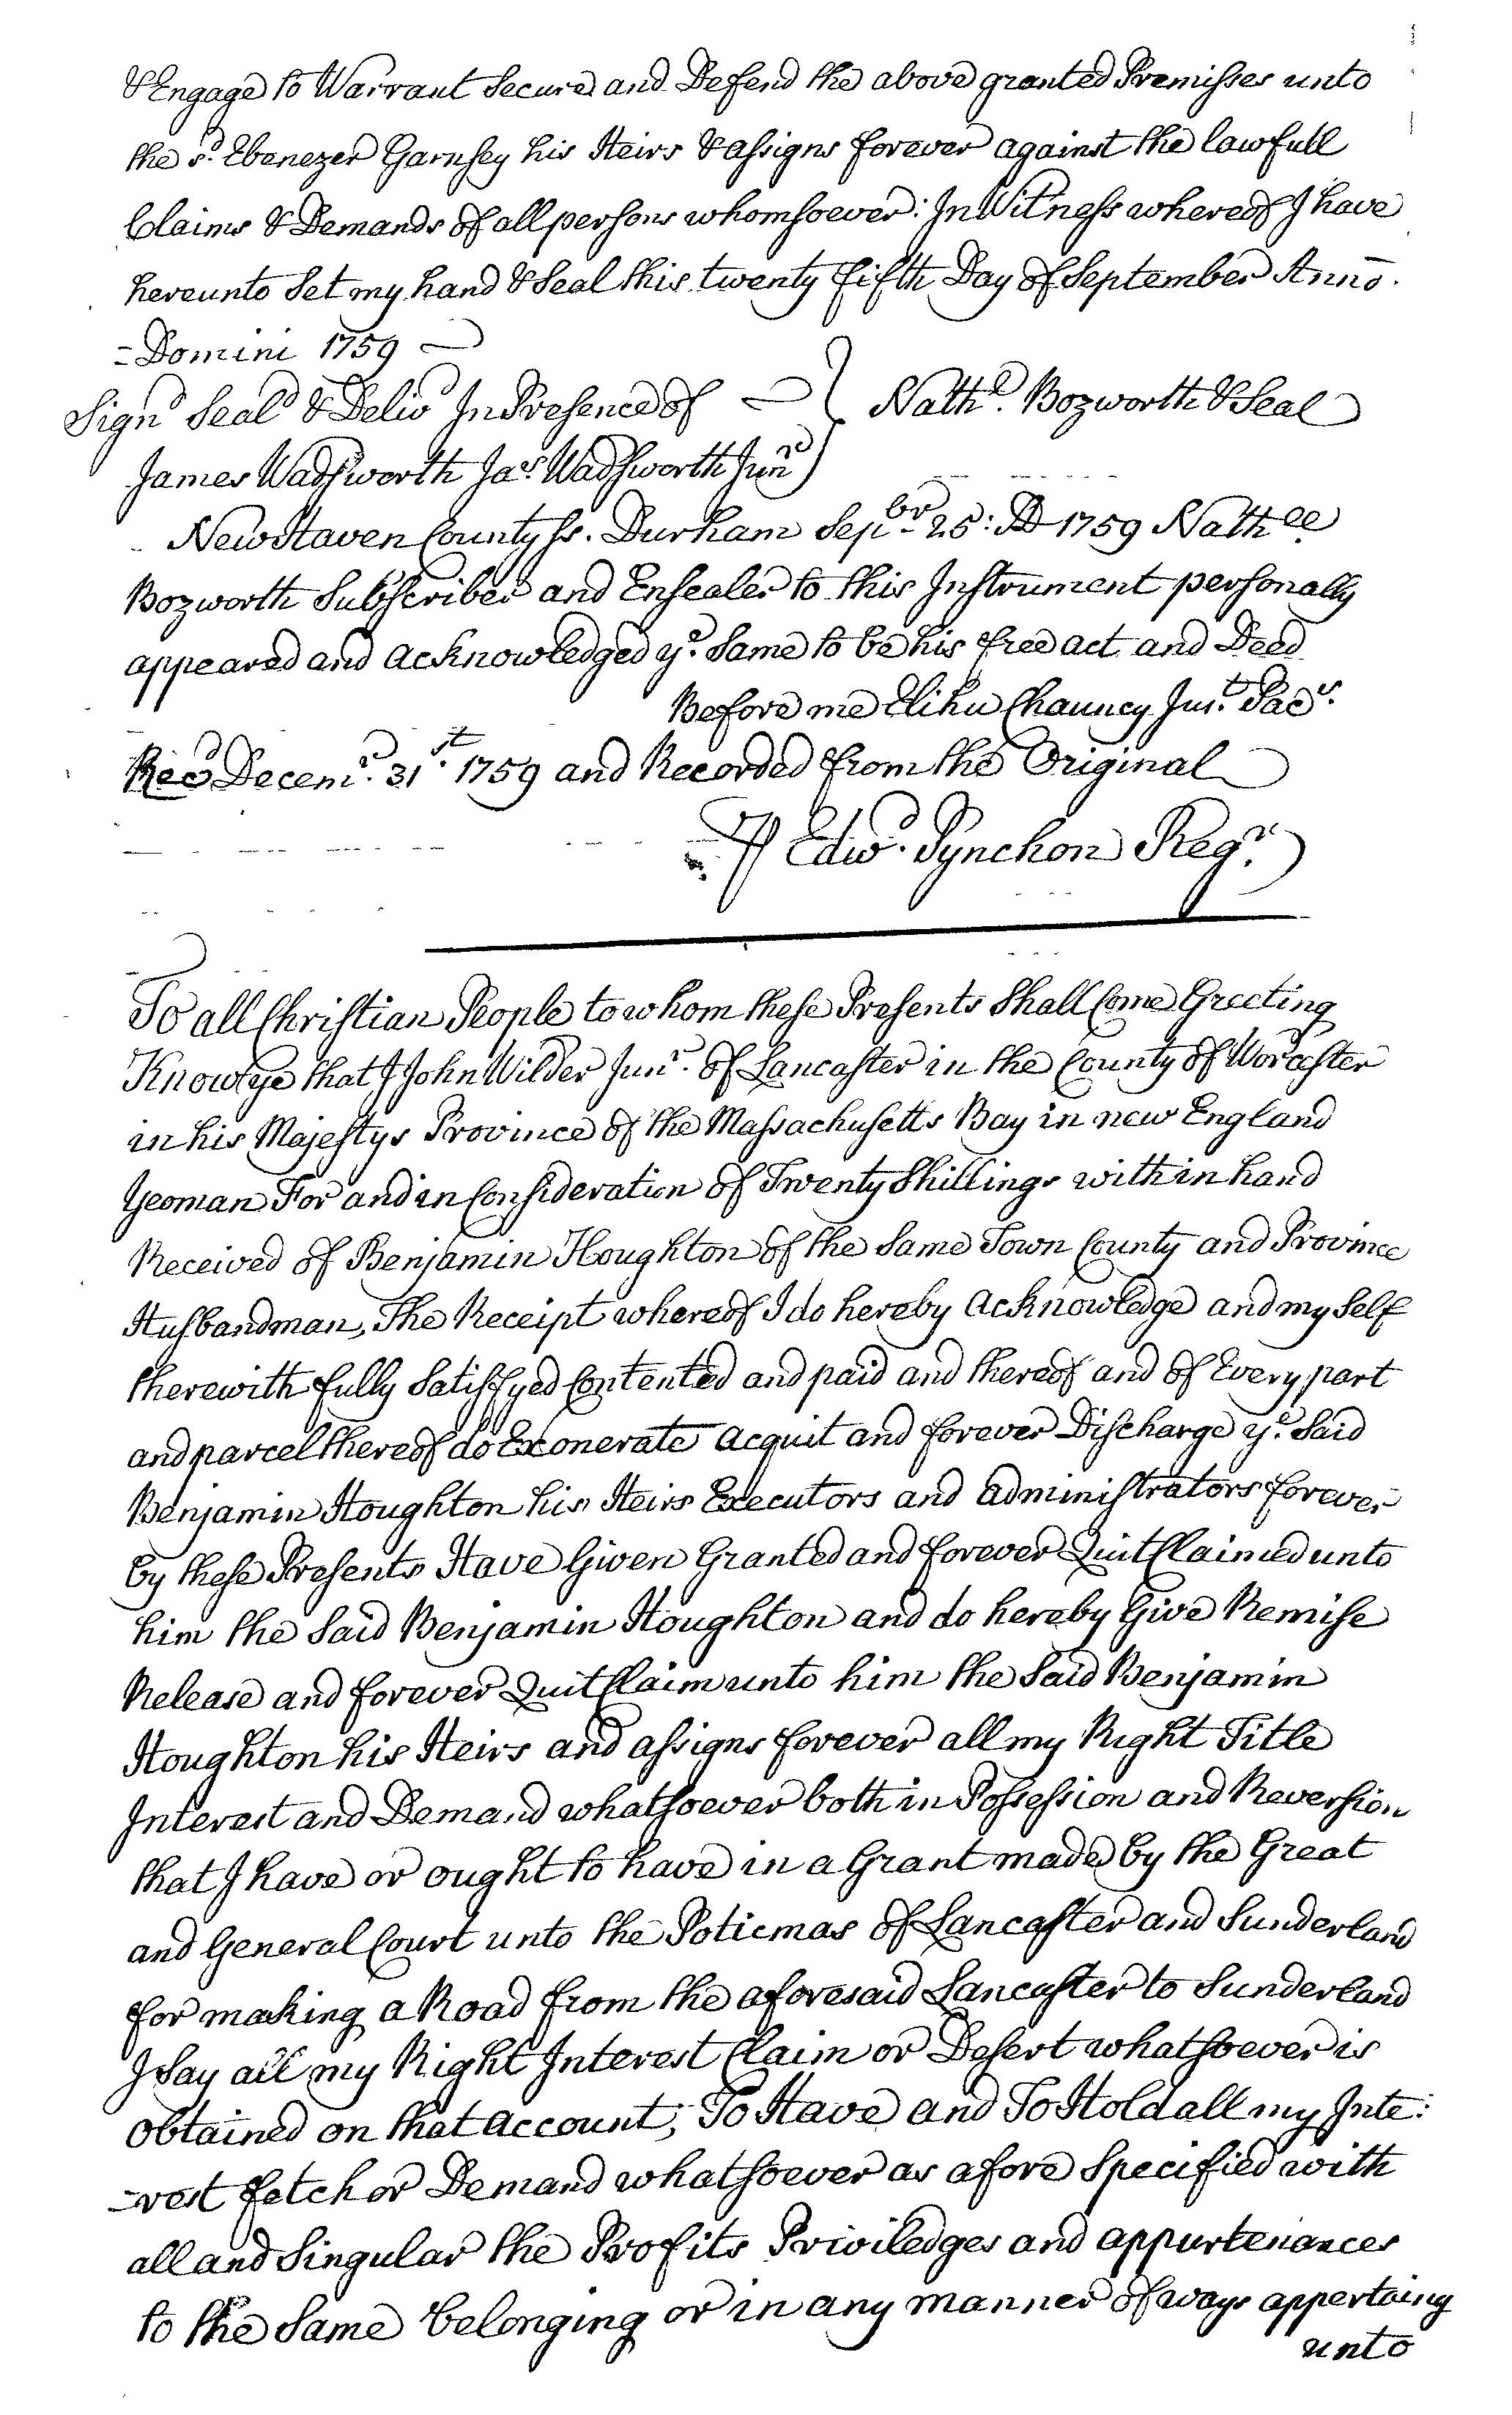 & Engage to Warrant Secure and Defend the above granted Premisses unto
the sd. Ebenezer Garnsey his Heirs & assigns forever against the lawfull
Claims & Demands of all persons whomsoever: In Witness whereof I have
hereunto Set my hand & Seal this twenty fifth Day of September Anno
=Domini 1759
Signd Seald & Delivd In Presence of } Nathll. Bozworth & Seal
James Wadsworth Jas. Wadsworth Junr
New Haven County ss. Durham Sepbr 25: AD 1759 Nathll
Bozworth Subscriber and Ensealer to this Instrument personally
appeared and acknowledged ye. Same to be his free act and Deed
Before me Elihu Chauncy Just. Pacs.
Recd Decemr. 31st. 1759 and Recorded from the Original
P Edwd. Pynchon Regr.
To all Christian People to whom these Presents Shall Come Greeting
Know ye that I John Wilder Junr. of Lancaster in the County of Worcester
in his Majestys Province of the Massachusetts Bay in new England
Yeoman For and in Consideration of Twenty Shillings within hand
Received of Benjamin Houghton of the Same Town County and Province
Husbandman, The Receipt whereof I do hereby acknowledge and my Self
therewith fully Satisfyed Contented and paid and thereof and of Every part
and parcel thereof do Exonerate acquit and forever Discharge ye. Said
Benjamin Houghton his Heirs Executors and administrators forever
by these Presents Have Given Granted and forever Quit Claimed unto
him the Said Benjamin Houghton and do hereby Give Remise
Release and forever Quit Claim unto him the Said Benjamin
Houghton his Heirs and assigns forever all my Right Title
Interest and Demand whatsoever both in Possession and Reversion
that I have or ought to have in a Grant made by the Great
and General Court unto the Poticmas of Lancaster and Sunderland
for making a Road from the aforesaid Lancaster to Sunderland
I Say all my Right Interest Claim or Desert whatsoever is
obtained on that account; To Have and To Hold all my Inte:
=rest fetch or Demand whatsoever as afore Specified with
all and Singular the Profits Priviledges and appurtenances
to the Same belonging or in any manner of ways appertaing
unto